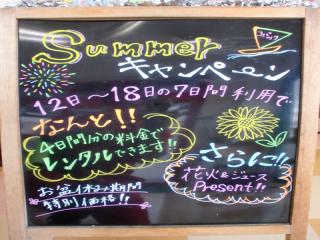 Summer
キャンペーン
12日〜18日の7日間利用で
なんと!!
4日間分の料金で
レンタルできます!!
さらに!!
花火&ジュース
Present!!
お盆休み期間
特別価格!!